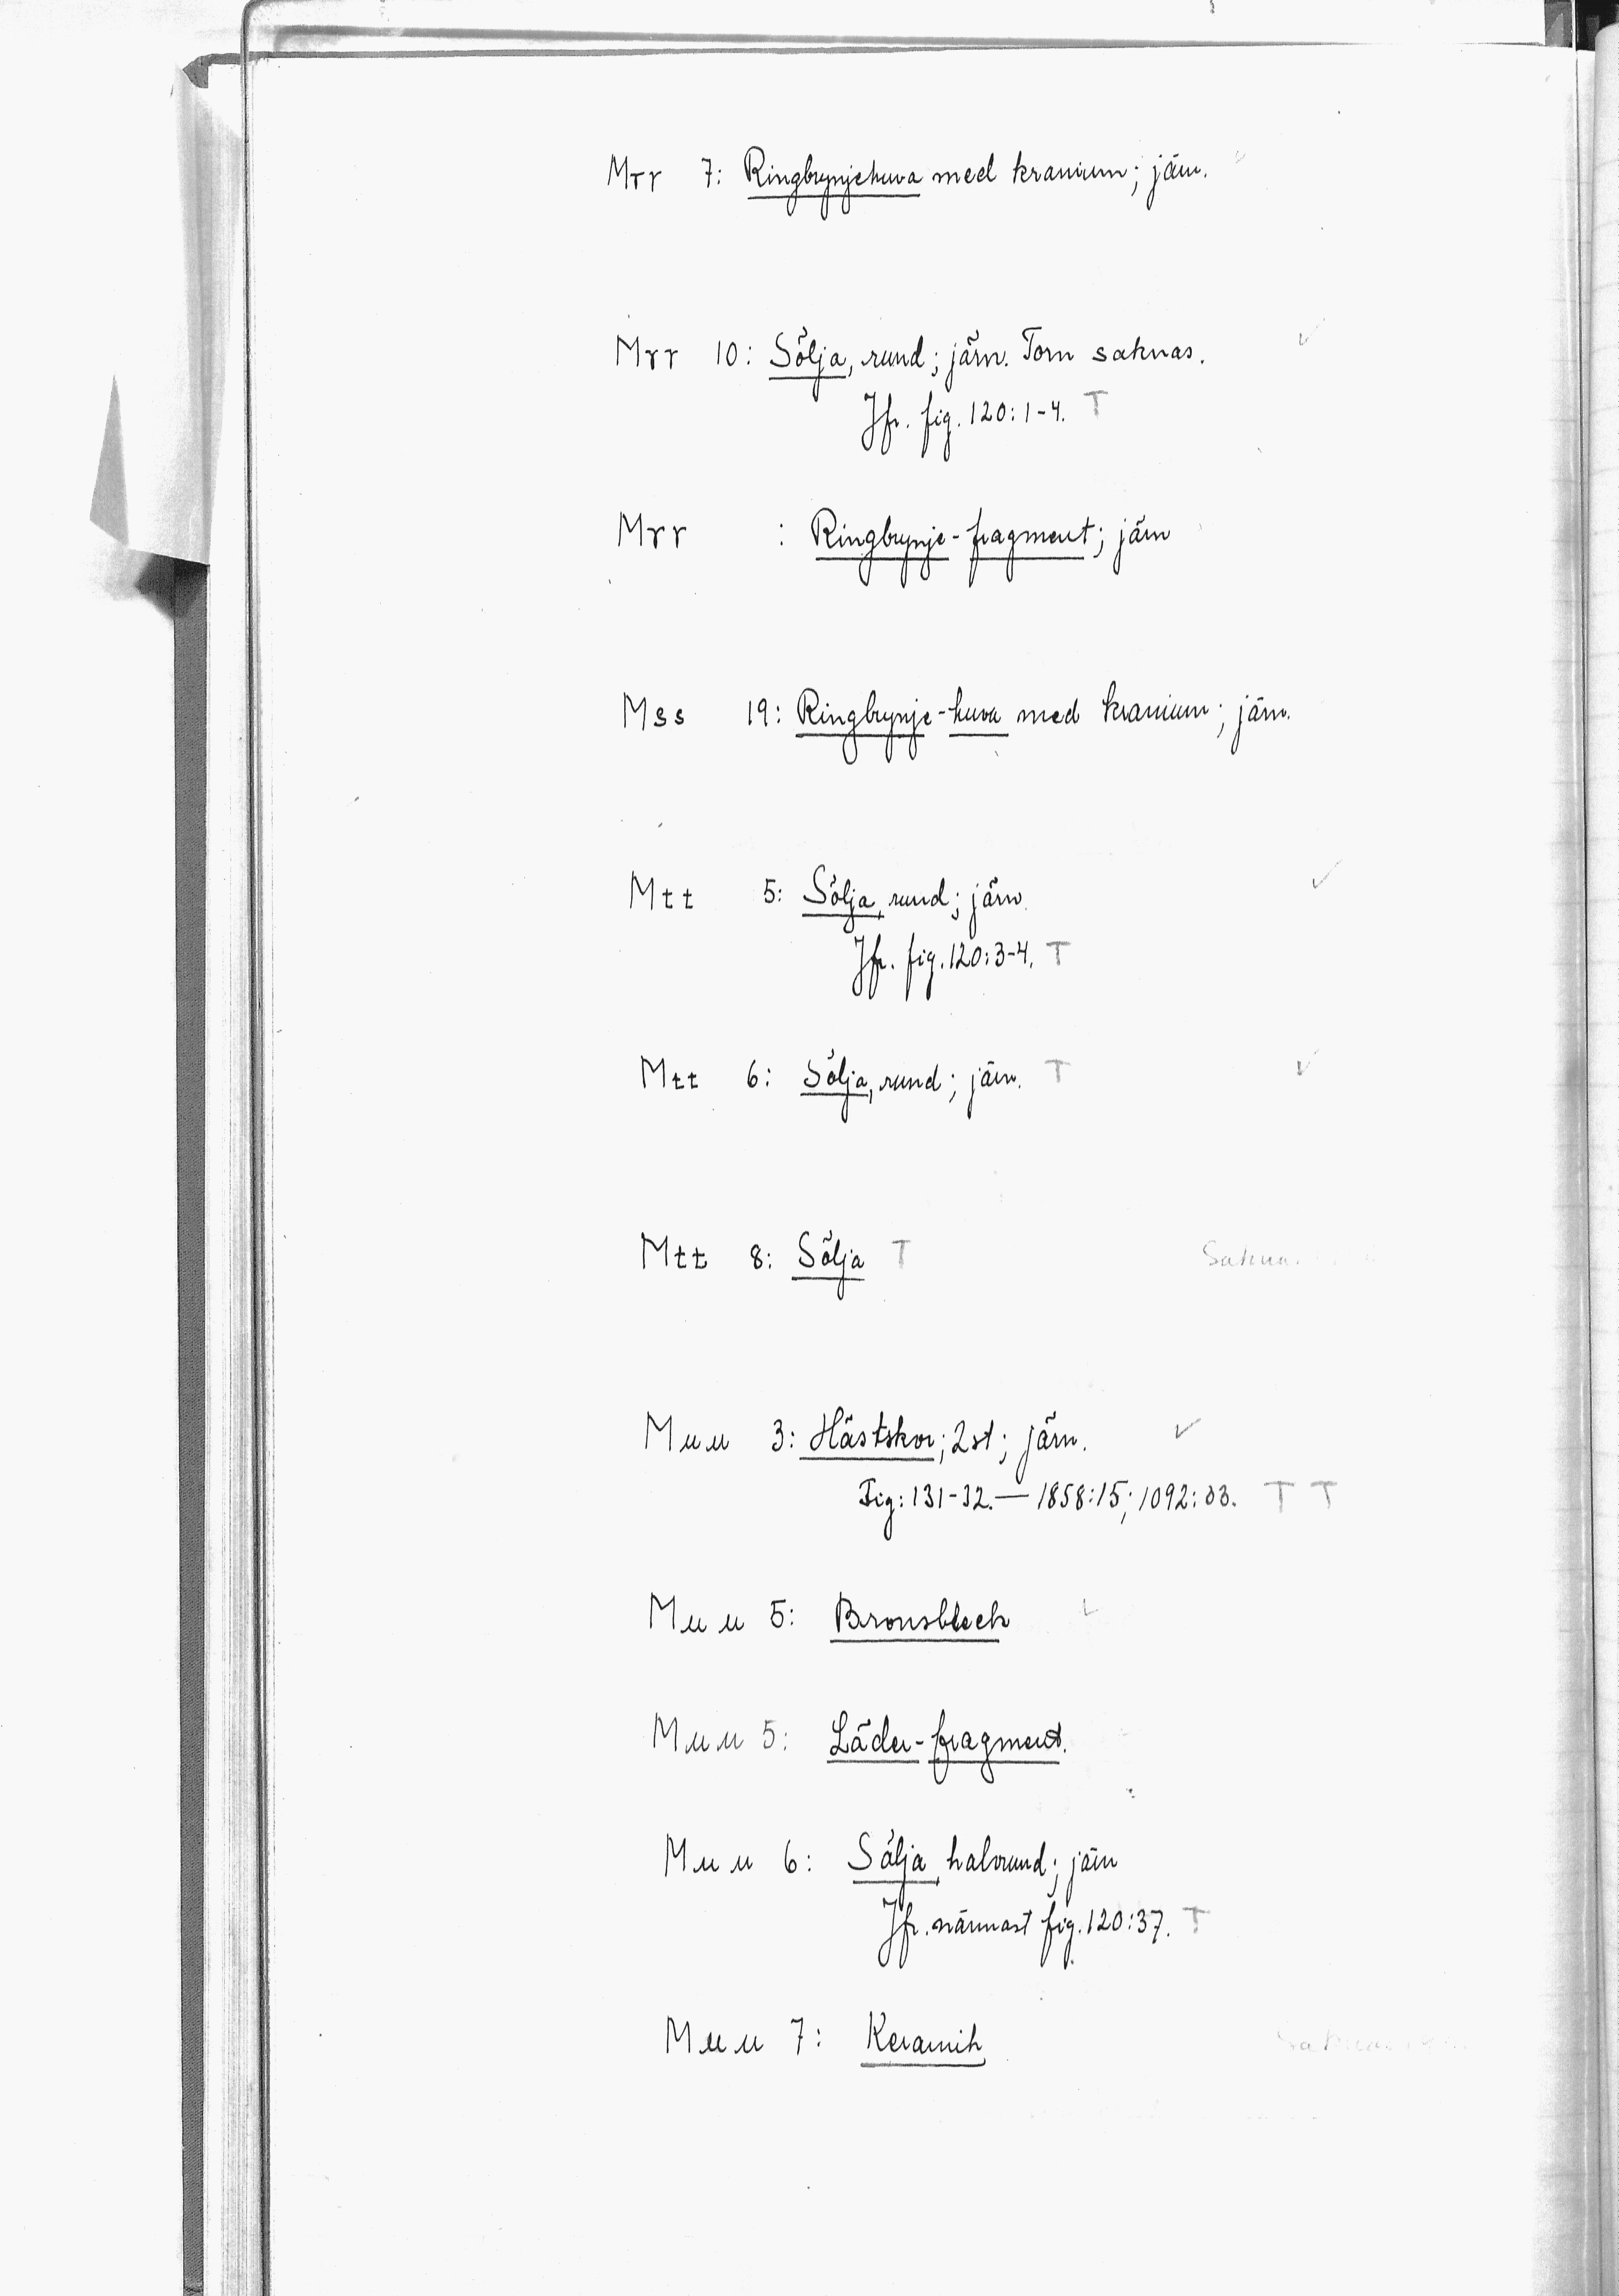 Mrr 7: Ringbrynjehuva med kranium; järn.
Mrr 10: Sölja, rund; järn. Torn saknas. ✓
Jfr. fig. 120:1-4. T
Mrr : Ringbrynje-fragment; järn
Mss 19: Ringbrynje-huva med kranium; järn.
Mtt 5: Sölja, rund; järn. ✓
Jfr. fig. 120:3-4. T
Mtt 6: Sölja, rund; järn. T ✓
Mtt 8: Sölja T
Muu 3: Hästskor; 2st; järn. ✓
Fig: 131-32. — 1858:15; 1092:33. T T
Muu 5: Bronsbleck ✓
Muu 5: Läder-fragment.
Muu 6: Sölja, halvrund; järn
Jfr. närmast fig. 120:37. T
Muu 7: Keramik